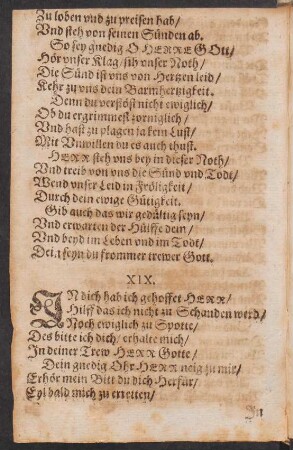 Zu loben vnd zu preisen hab/
Vnd steh von seinen Sünden ab.
So sey gnedig O HERRE GOtt/
Hör vnser Klag/ sih vnser Noth/
Die Sünd ist vns von Hertzen leid/
Kehr zu vns dein Barmhertzigkeit.
Denn du verstöst nicht ewiglich/
Ob du ergrimmest zorniglich/
Vnd hast zu plagen ja kein Lust/
Mit Vnwillen du es auch thust.
HERR steh vns bey in dieser Noth/
Vnd treib von vns die Sünd vnd Todt/
Wend vnser Leid in Fröligkeit/
Durch dein ewige Gütigkeit.
Gib auch das wir gedültig seyn/
Vnd erwarten der Hülffe dein/
Vnd beyd im Leben vnd im Todt/
Dein seyn du frommer trewer Gott.
XIX.
IN dich hab ich gehoffet HERR/
Hilff das ich nicht zu Schanden werd/
Noch ewiglich zu Spotte/
Des bitte ich dich/ erhalte mich/
In deiner Trew HERR Gotte/
Dein gnedig Ohr HERR neig zu mir/
Erhör mein Bitt du dich Herfür/
Eyl bald mich zu erretten/